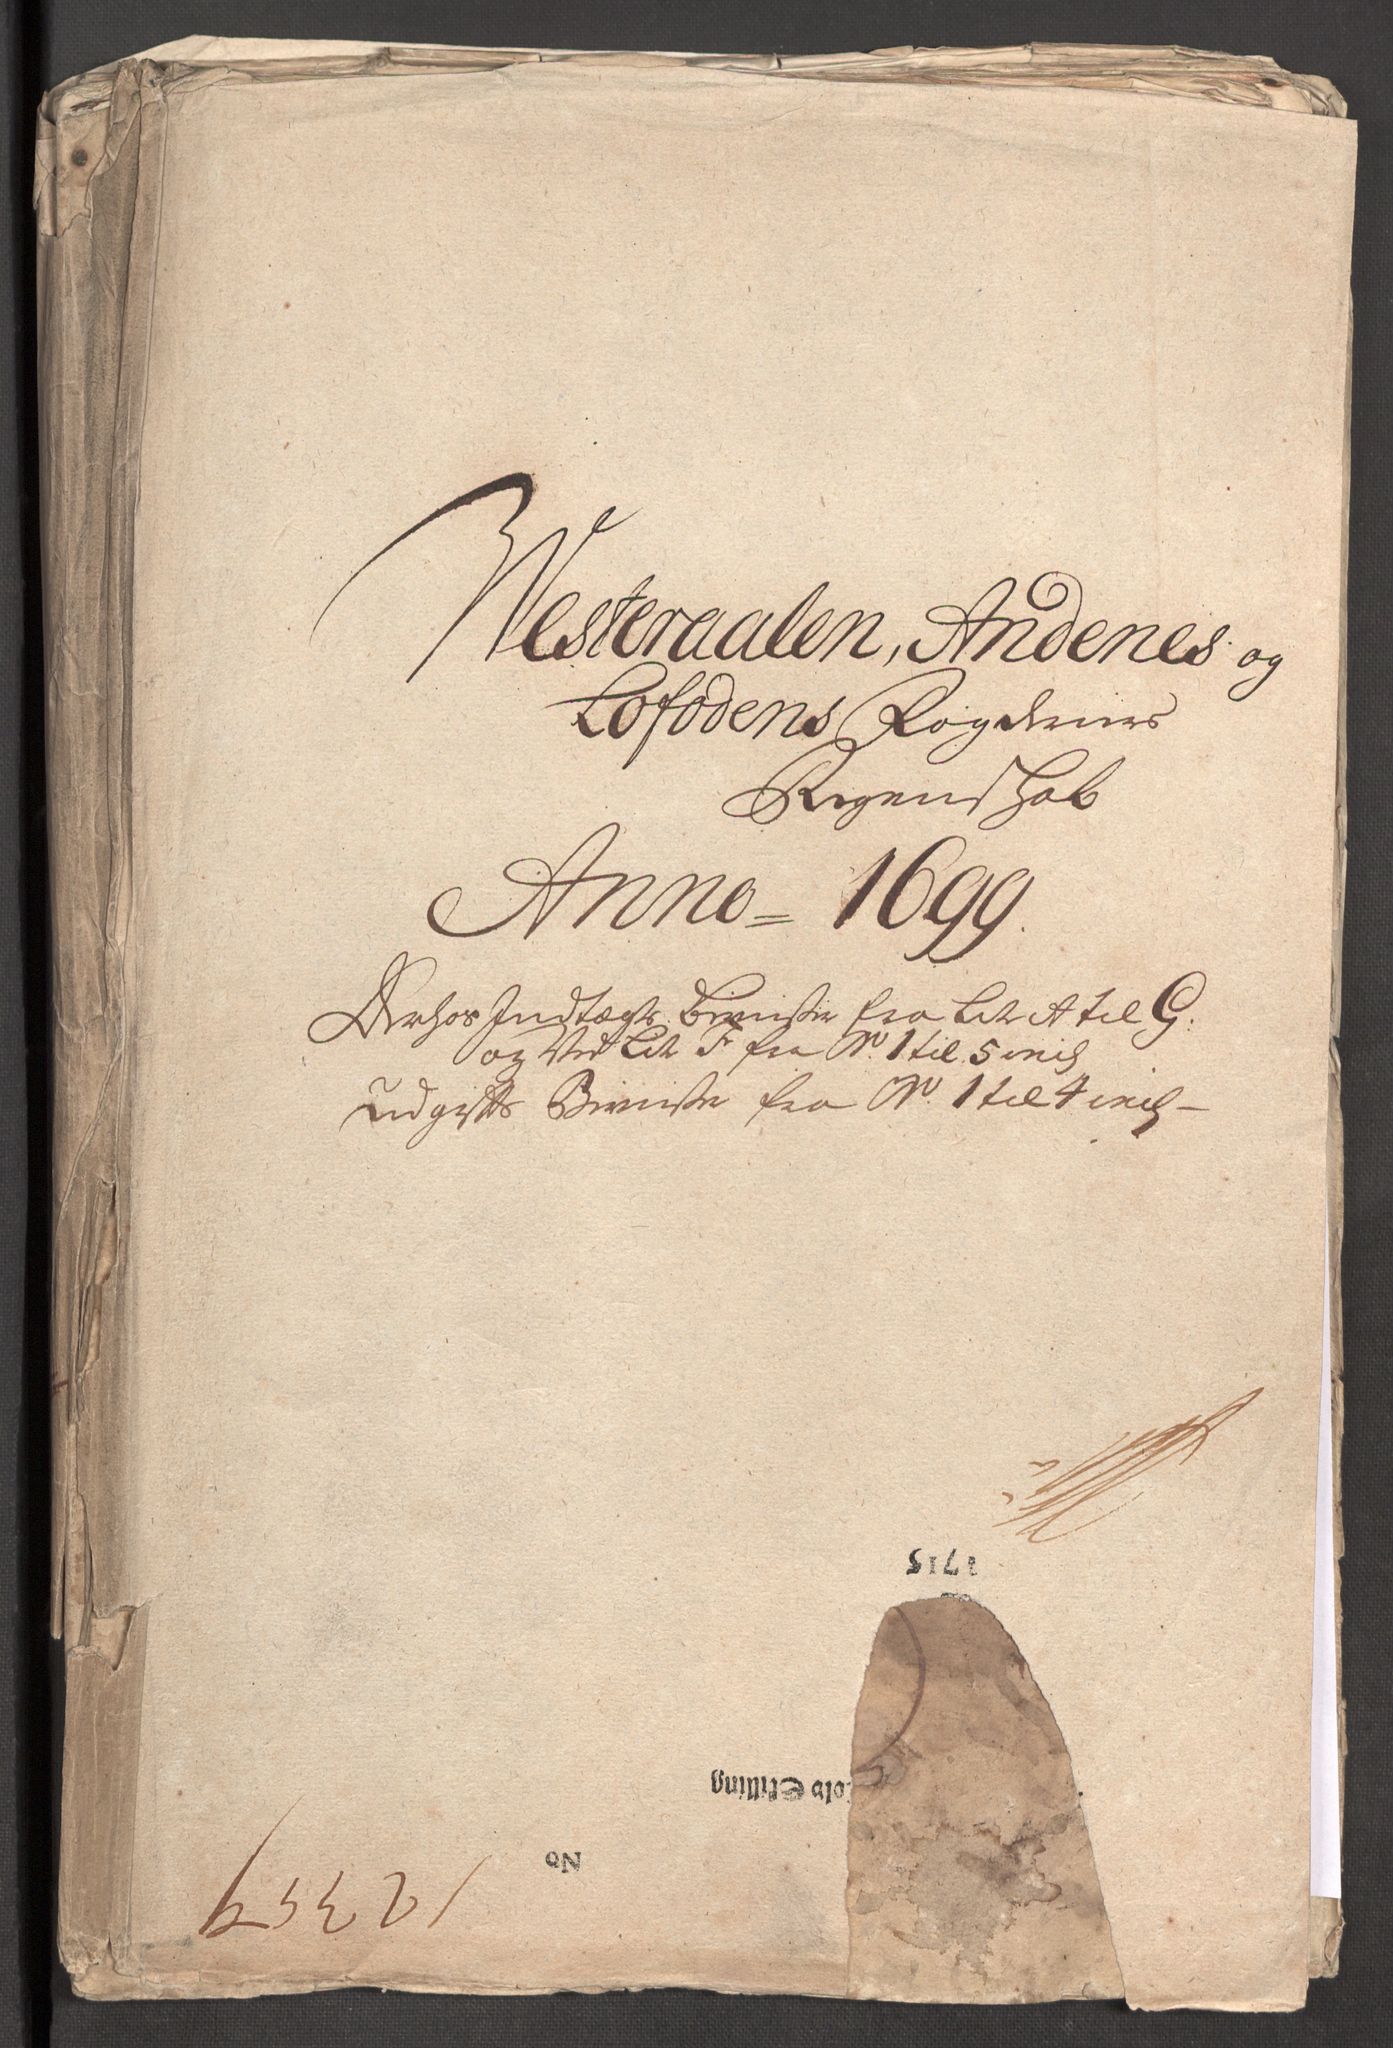 Westeraalen, Andenes og
Lofodens Fogderiers
Regenschab
Anno = 1699.
Derhos Indtægts Beviser fra Lit A til G:
og Ved Lit F fra No. 1 til 5 incl
Udgifts Beviser fra No. 1 til 4 incl –
1715
Tolv Skilling
No
12357